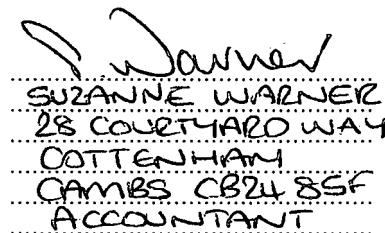 S. Warner
SUZANNE WARNER
28 COURTYARD WAY
COTTENHAM
CAMBS CB24 8SF
ACCOUNTANT